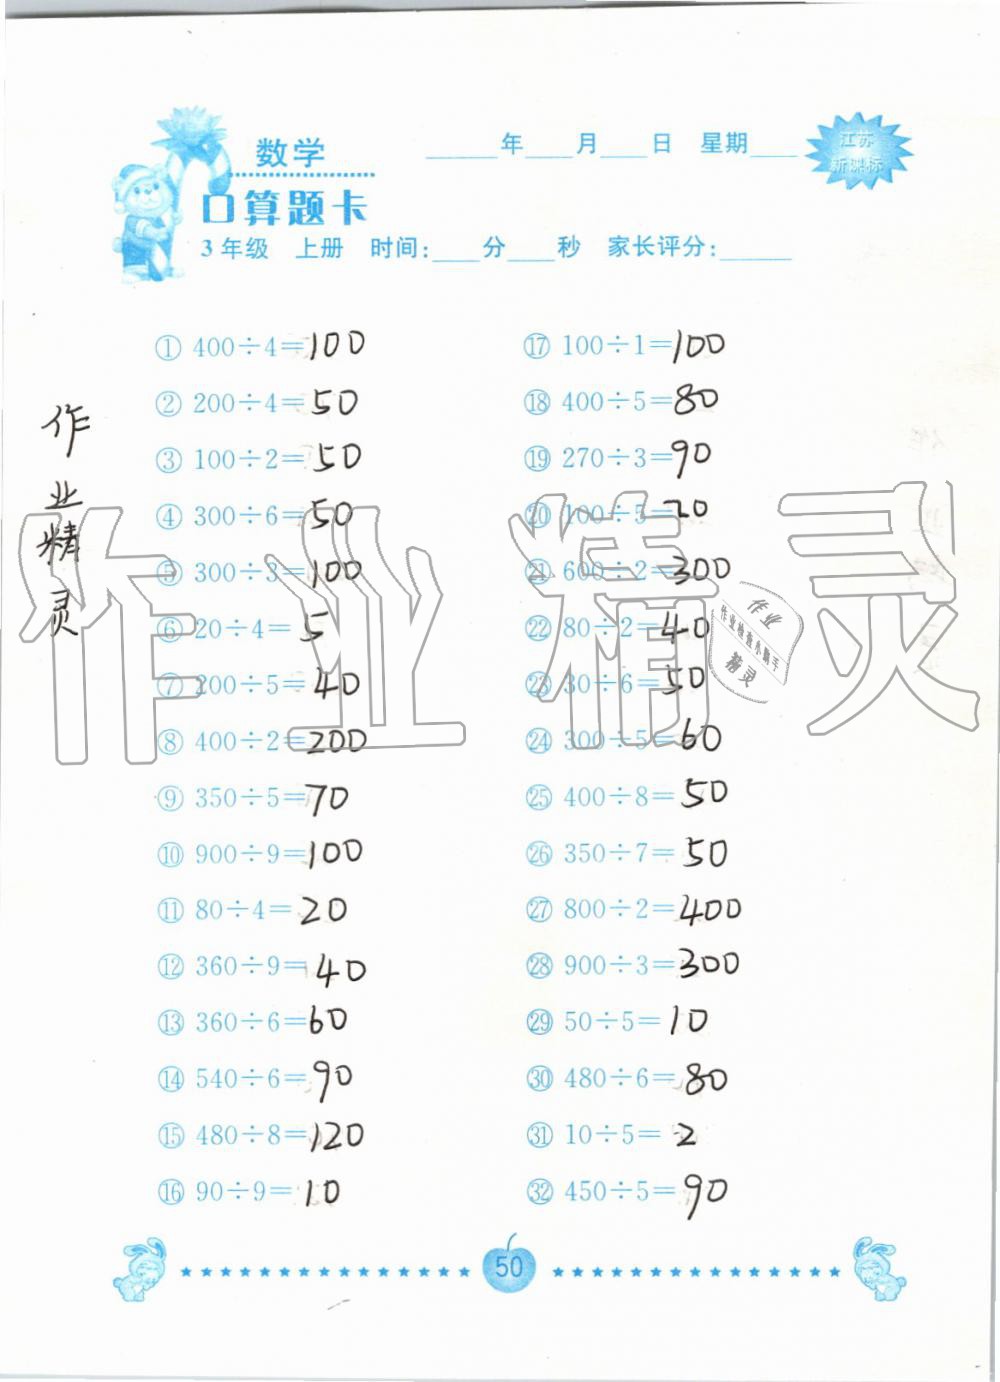 数学
____年____月____日 星期____
江苏
新课标
口算题卡
3年级 上册 时间:____分____秒 家长评分:______
① 400÷4=100
② 200÷4=50
③ 100÷2=50
④ 300÷6=50
⑤ 300÷3=100
⑥ 20÷4=5
⑦ 200÷5=40
⑧ 400÷2=200
⑨ 350÷5=70
⑩ 900÷9=100
⑪ 80÷4=20
⑫ 360÷9=40
⑬ 360÷6=60
⑭ 540÷6=90
⑮ 480÷8=120
⑯ 90÷9=10
⑰ 100÷1=100
⑱ 400÷5=80
⑲ 270÷3=90
⑳ 100÷5=20
㉑ 600÷2=300
㉒ 80÷2=40
㉓ 30÷6=50
㉔ 300÷5=60
㉕ 400÷8=50
㉖ 350÷7=50
㉗ 800÷2=400
㉘ 900÷3=300
㉙ 50÷5=10
㉚ 480÷6=80
㉛ 10÷5=2
㉜ 450÷5=90
作业精灵
作业精灵
作业
作业检查小助手
精灵
50